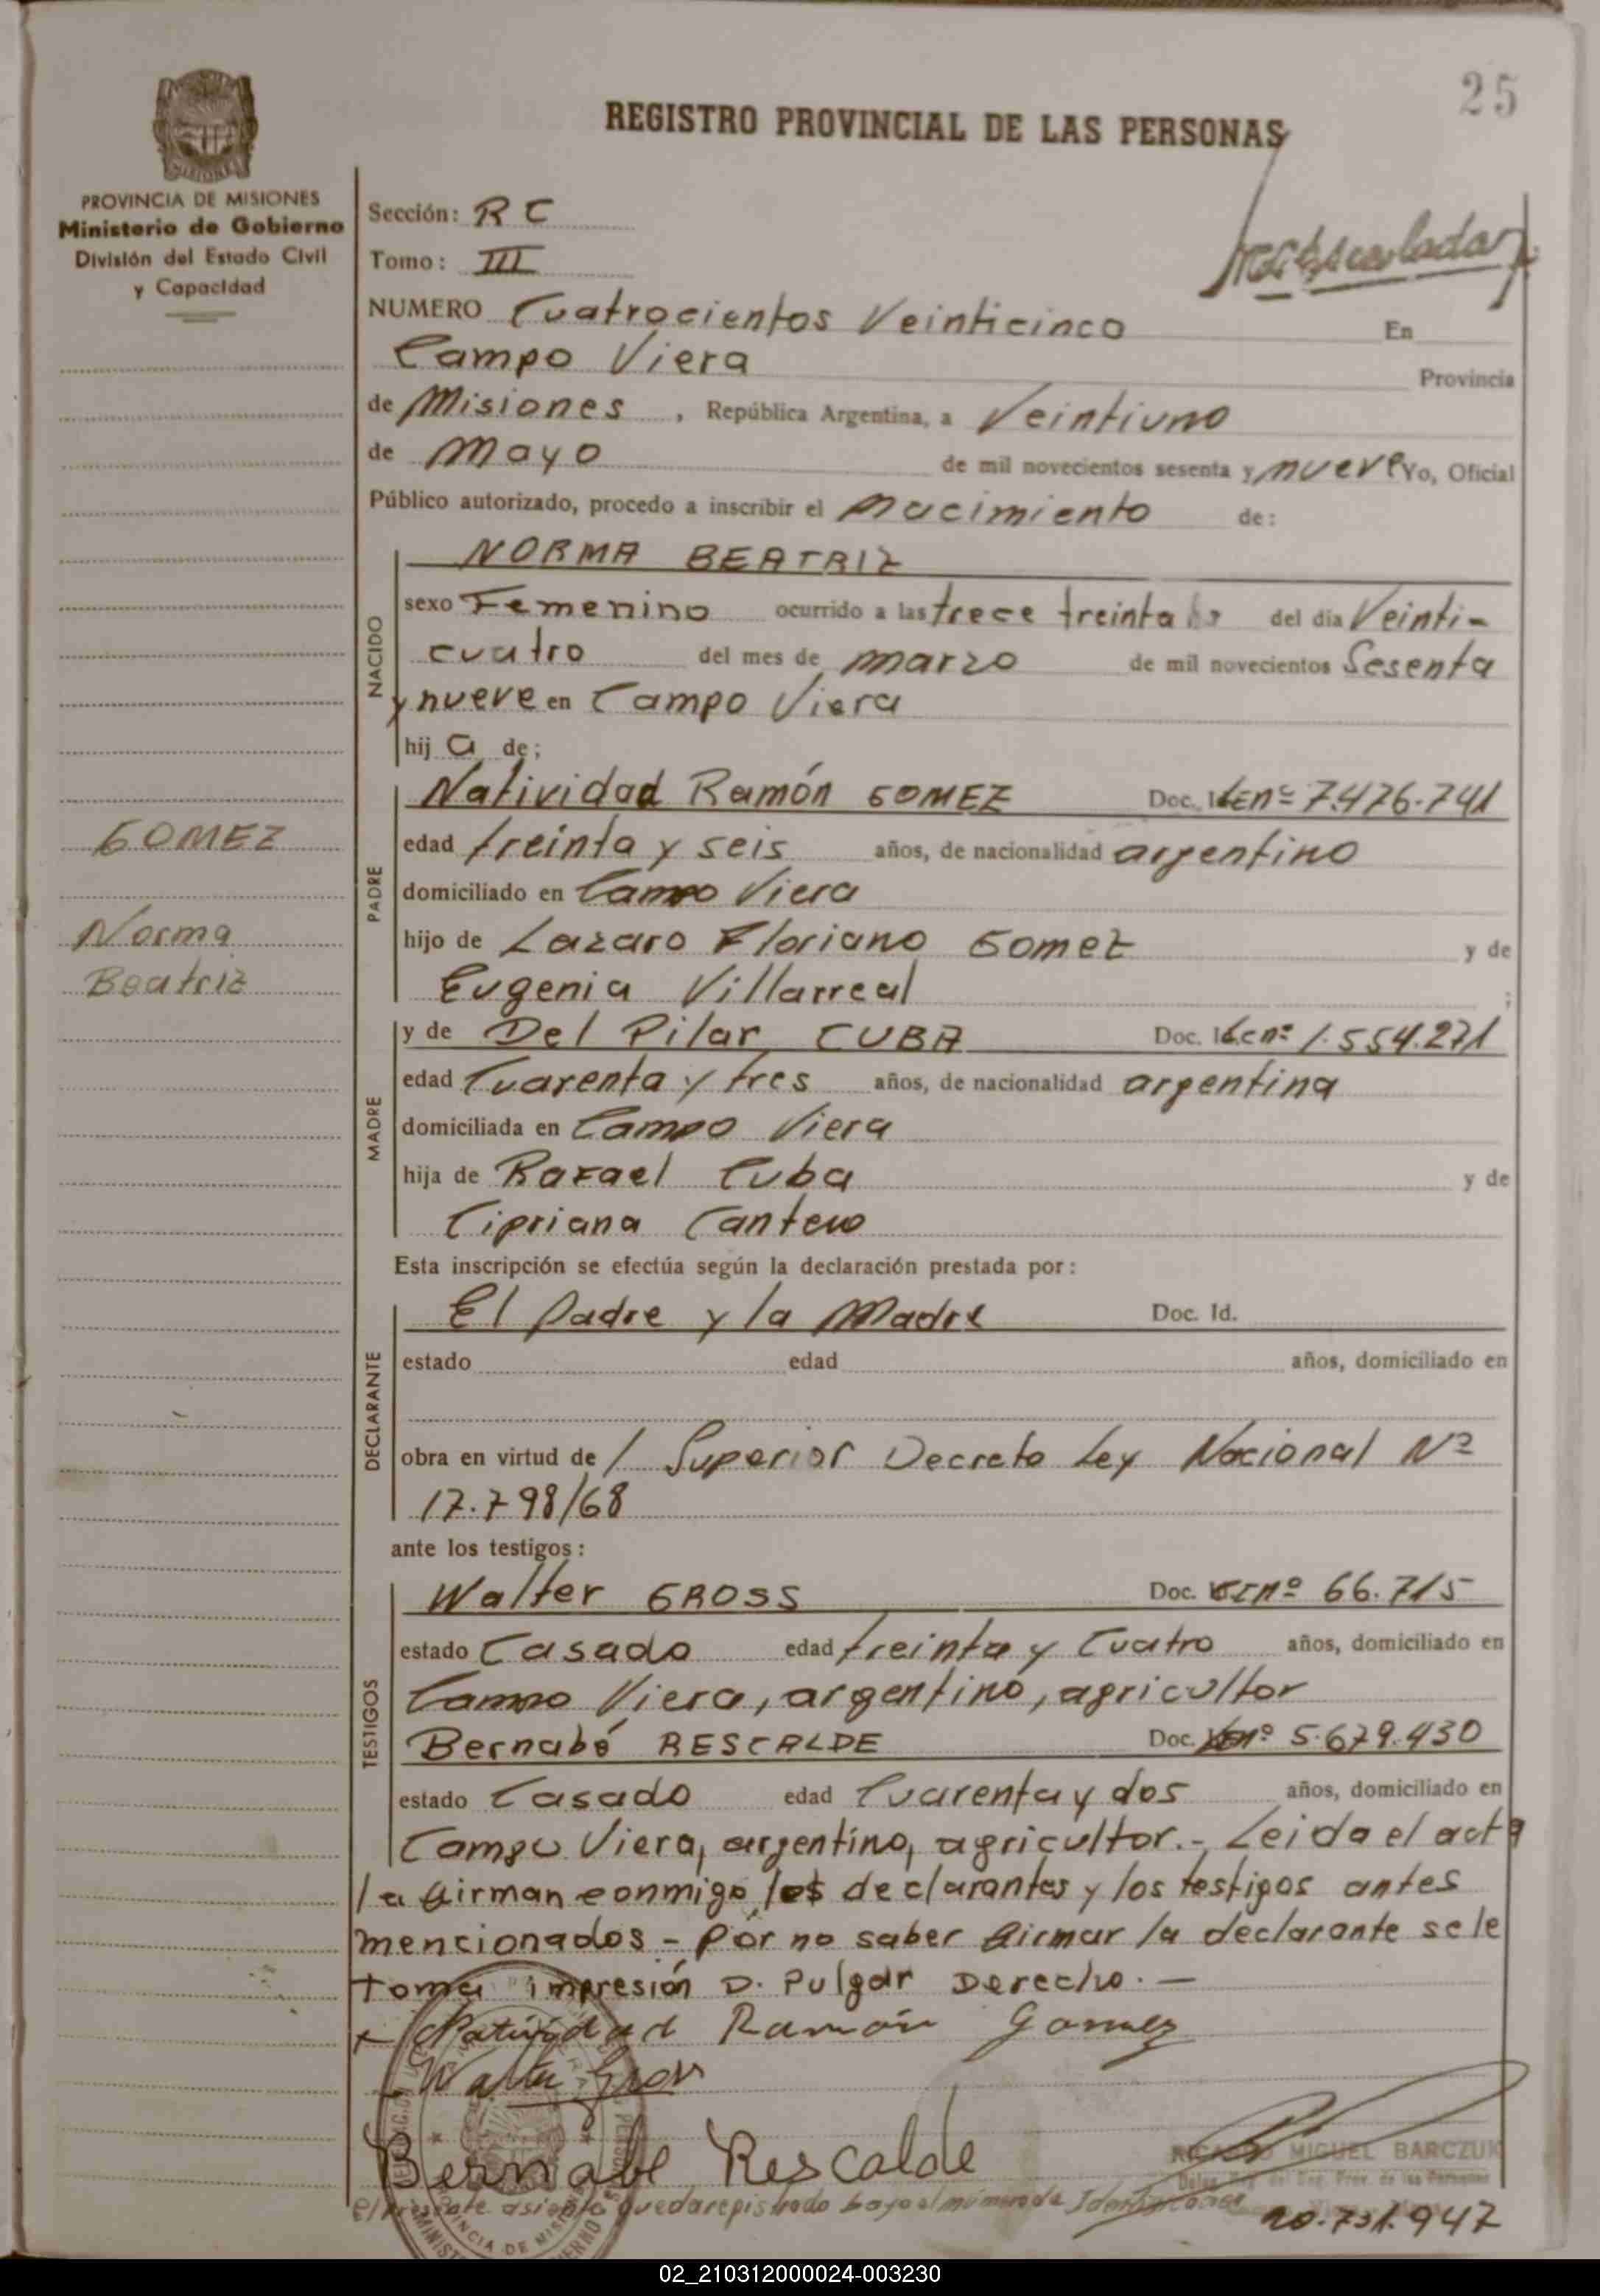 25
REGISTRO PROVINCIAL DE LAS PERSONAS
PROVINCIA DE MISIONES
Ministerio de Gobierno
División del Estado Civil
y Capacidad
Sección: R C
Tomo: III
NUMERO Cuatrocientos Veinticinco En
Campo Viera Provincia
de Misiones, República Argentina, a Veintiuno
de Mayo de mil novecientos sesenta y nueve Yo, Oficial
Público autorizado, procedo a inscribir el nacimiento de:
NACIDO
NORMA BEATRIZ
sexo Femenino ocurrido a las trece treinta hs del día Veinti-
cuatro del mes de marzo de mil novecientos Sesenta
y nueve en Campo Viera
hij a de;
PADRE
Natividad Ramón GOMEZ Doc. LEnº 7.476.741
GOMEZ
edad treinta y seis años, de nacionalidad argentino
domiciliado en Campo Viera
Norma
hijo de Lazaro Floriano Gomez y de
Beatriz
Eugenia Villarreal ;
MADRE
y de Del Pilar CUBA Doc. Lcnº 1.554.271
edad Cuarenta y tres años, de nacionalidad argentina
domiciliada en Campo Viera
hija de Rafael Cuba y de
Cipriana Cantero
Esta inscripción se efectúa según la declaración prestada por:
DECLARANTE
El Padre y la Madre Doc. Id.
estado edad años, domiciliado en
obra en virtud de / Superior Decreto Ley Nacional Nº
17.798/68
ante los testigos:
TESTIGOS
Walter GROSS Doc. CInº 66.715
estado Casado edad treinta y Cuatro años, domiciliado en
Campo Viera, argentino, agricultor
Bernabé RESCALDE Doc. nº 5.679.430
estado Casado edad Cuarenta y dos años, domiciliado en
Campo Viera, argentino, agricultor.- Leida el acta
la firman conmigo los declarantes y los testigos antes
mencionados - Por no saber firmar la declarante se le
toma impresión D. Pulgar Derecho.-
Natividad Ramón Gomez
Walter Gross
Bernabe Rescalde
RICARDO MIGUEL BARCZUK
El presente asiento queda registrado bajo el numero de Identificacion
20.731.947
02_210312000024-003230